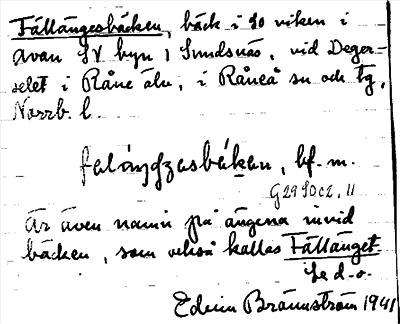 Fällängesbäcken, bäck i so viken i
avan SV byn Sundsnäs, vid Deger-
selet i Råne älv, i Råneå sn och tg,
Norrb. l.
bf. m.
Är även namn på ängena invid
bäcken, som också kallas Fällänget
Se d. o.
Edvin Brännström 1941